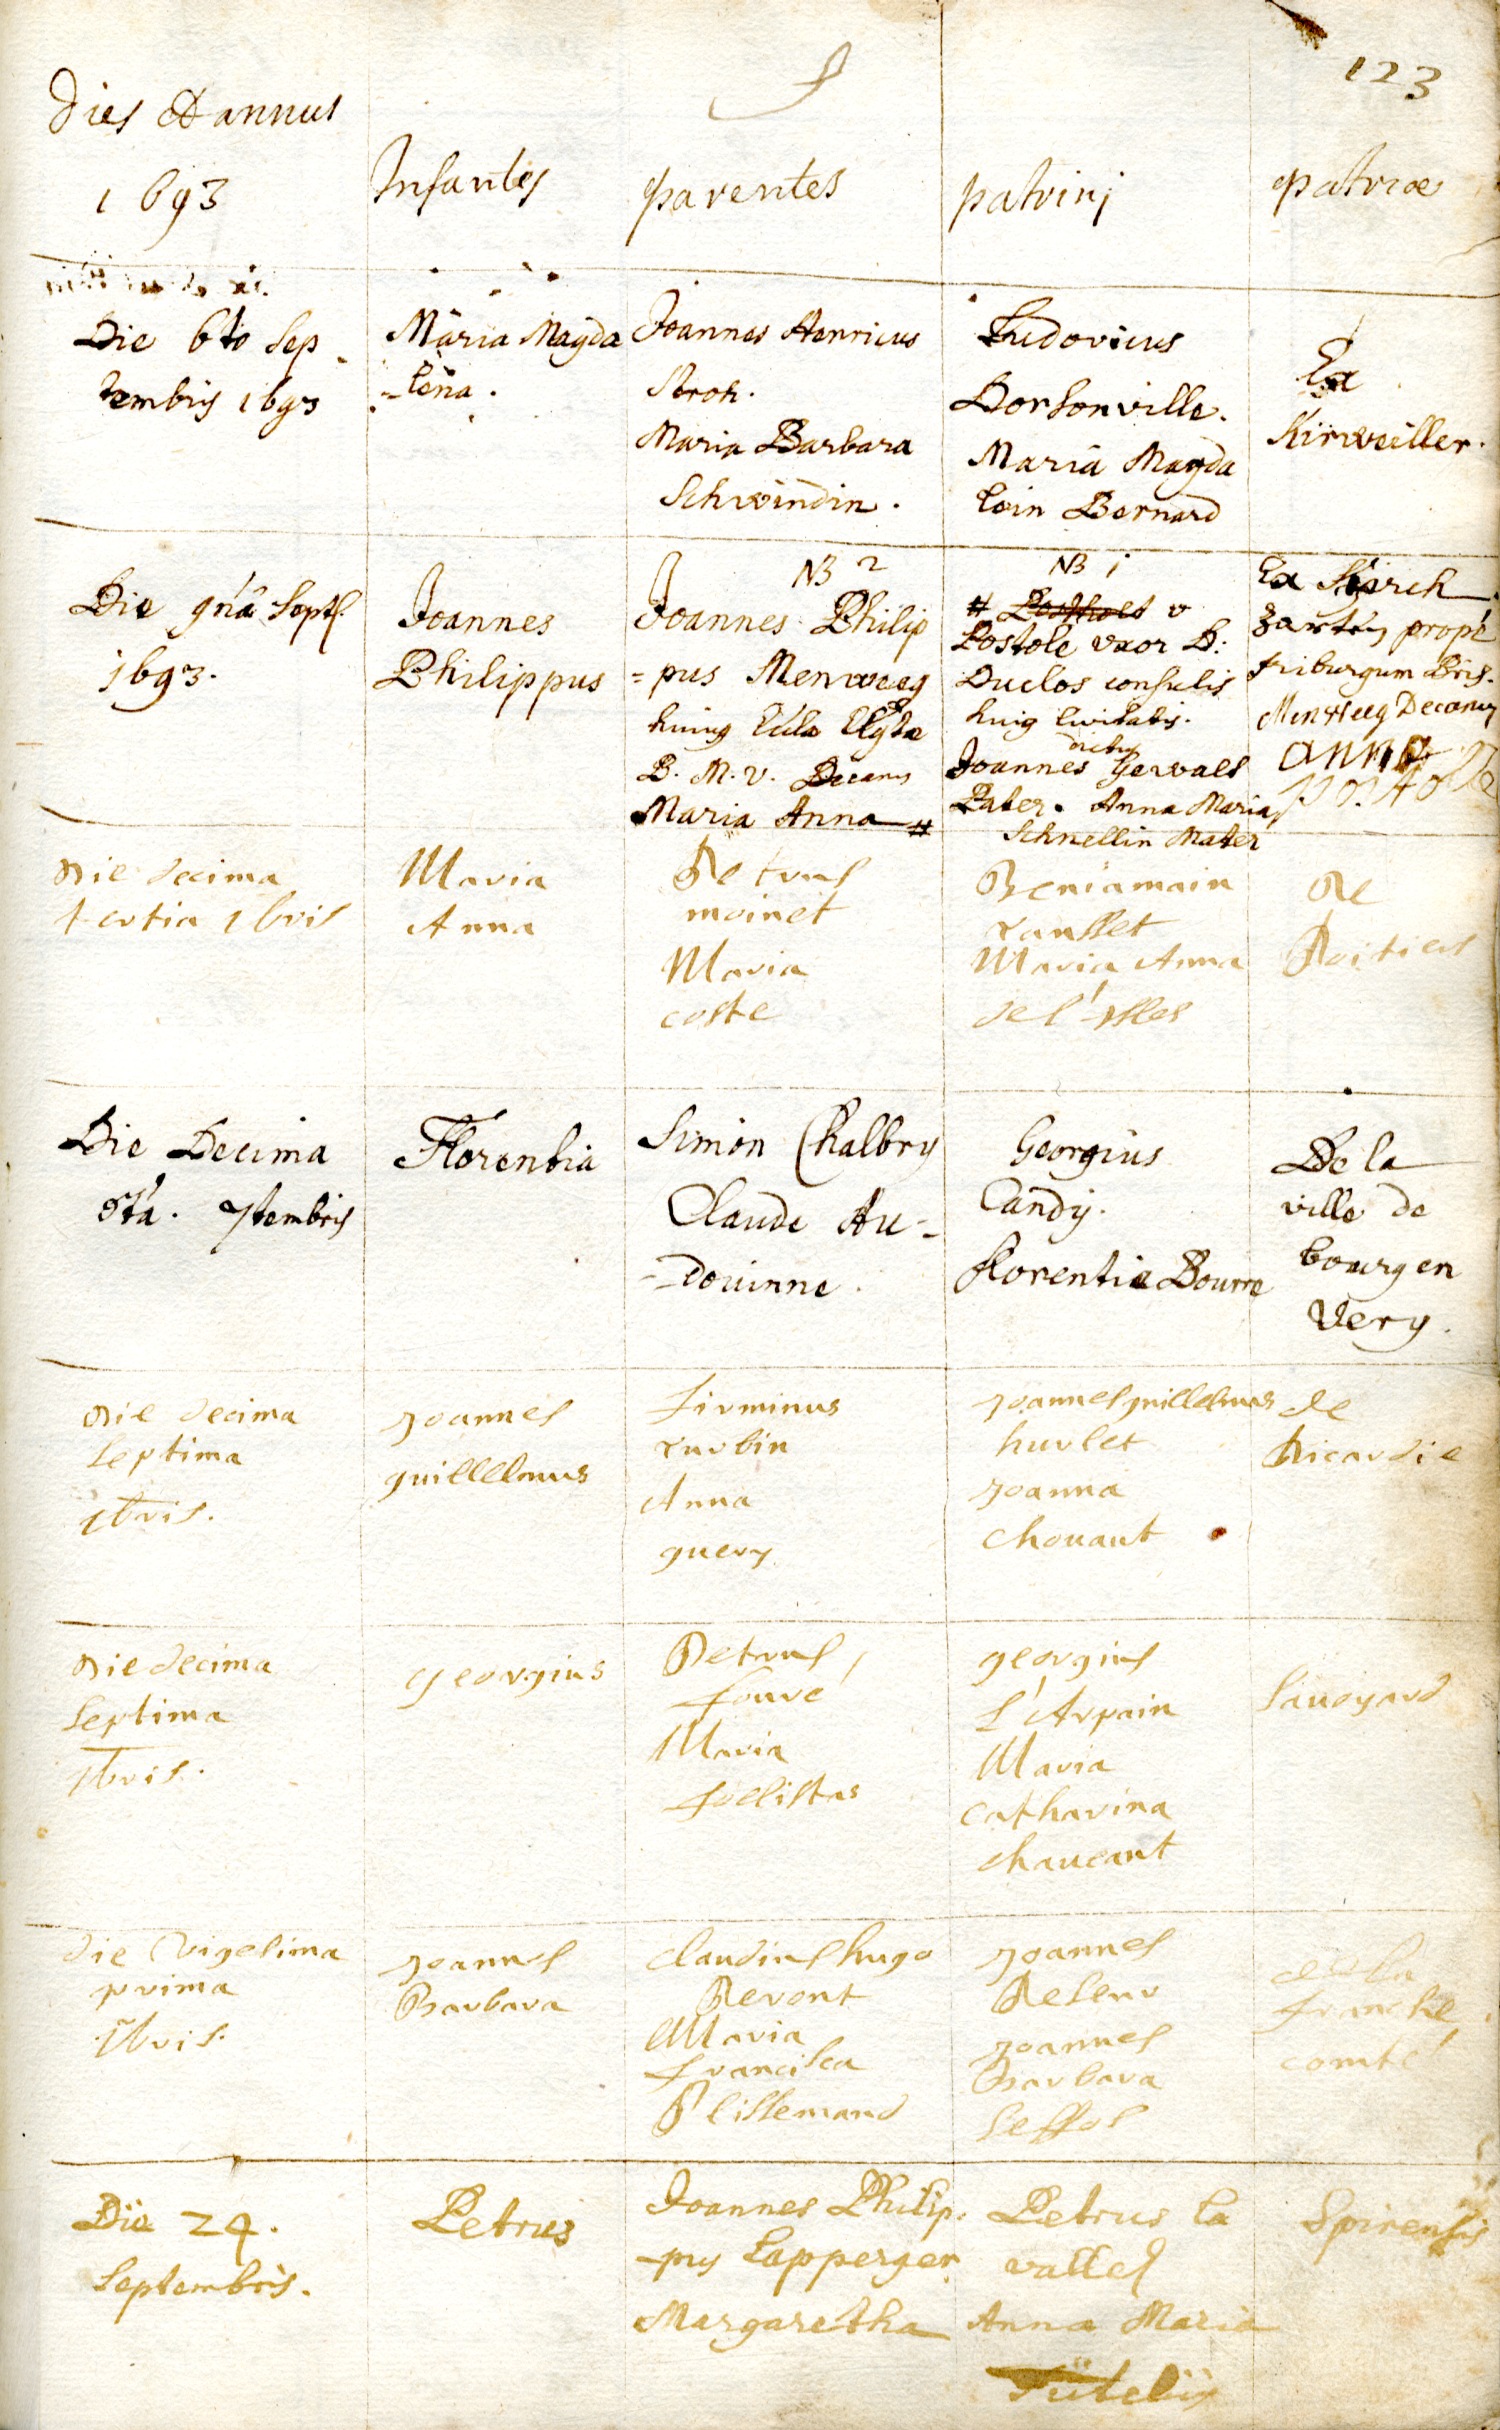 123
Dies et annus
1693
Infantes
parentes
patrini
patriæ
Die 6to Sep
tembris 1693
Maria Magda
-lena.
Joannes Henricus
Stroh.
Maria Barbara
Schwindin.
Ludovicus
Dorsonville.
Maria Magda
lein Bernard
Ex
Kirweiller.
Die 9nâ Sept.
1693.
Joannes
Philippus
NB 2
Joannes Philip
=pus Menweeg
B. M. V. Decanus
Maria Anna #
NB 1
#
Postole uxor D:
Duclos consulis
huig Civitatis.
dictus
Joannes Gervaes
Pater. Anna Maria
Schnellin Mater
Ex Kirch
zarten propè
friburgum Bris.
Menweeg Decanus
anna
postole
Die decima
tertia 7bris
Maria
Anna
Petrus
moinet
Maria
coste
Beniamain
rousset
Maria Anna
de l'isles
De
Poitiers
Die Decima
5tâ. 7tembris
Florentia
Simon Chalbry
Claude Au-
-douinne.
Georgius
Candy.
florentia Bourre
De la
ville de
bourg en
Very.
Die decima
septima
7bris.
Joannes
guillelmus
firminus
turbin
Anna
guery
Joannes guillelmus
hurlet
Joanna
chouant
de
Picardie
Die decima
septima
7bris.
georgius
Petrus
fouré
Maria
follistas
georgius
l'Arpain
Maria
catharina
chaucant
Sauoyard
die Vigesima
prima
7bris.
Joannes
Barbara
claudius hugo
Peront
Maria
francisca
Plissemand
Joannes
Peseur
Joannes
Barbara
Sessol
de la
franche
comté
Die 24.
Septembris.
Petrus
Joannes Philip.
-pus Lapperger
Margaretha
Petrus la
vallee
Anna Maria
Spirensis